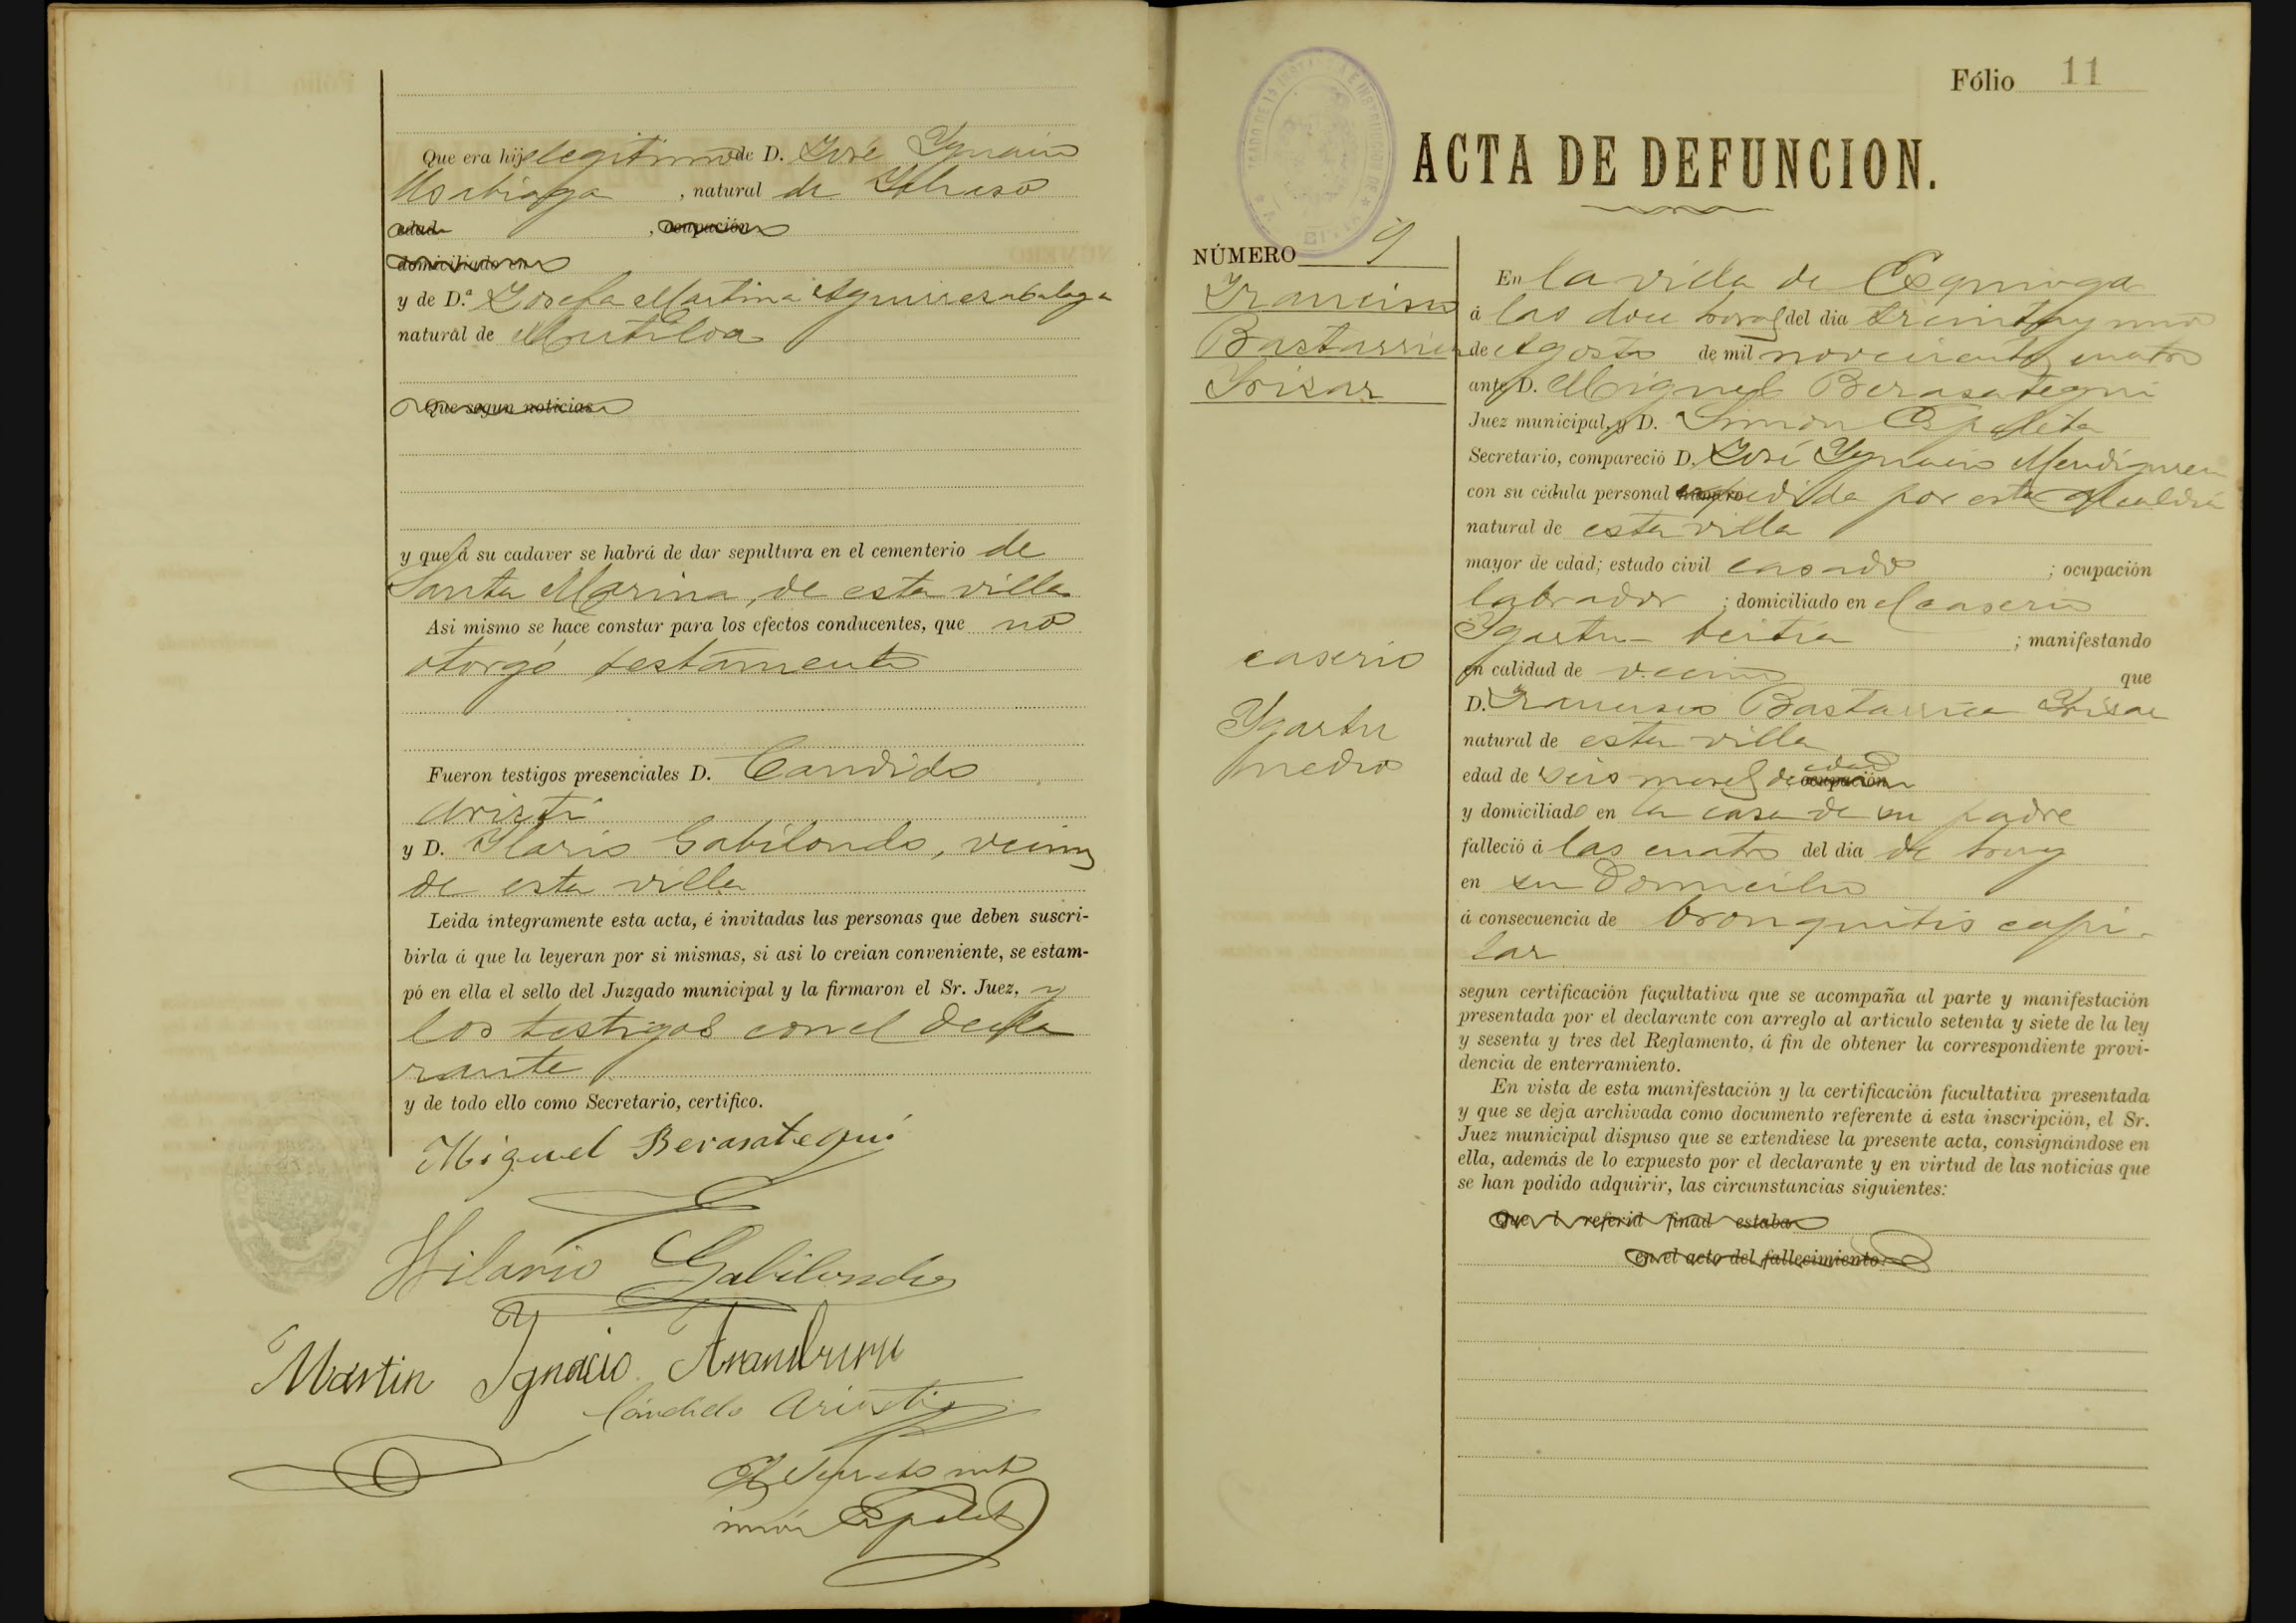 Que era hijo legitimo de D. José Ygnacio
Usabiaga, natural de Ydiazabal
edad , ocupación
domiciliado en
y de D.ª Josefa Martina Aguirrezabalaga
natural de Mutiloa
Que segun noticias
y que á su cadaver se habrá de dar sepultura en el cementerio de
Santa Marina, de esta villa
Asi mismo se hace constar para los efectos conducentes, que no
otorgó testamento
Fueron testigos presenciales D. Candido
Aristi
y D. Ylario Gabilondo, vecinos
de esta villa
Leida integramente esta acta, é invitadas las personas que deben suscri-
birla á que la leyeran por si mismas, si asi lo creian conveniente, se estam-
pó en ella el sello del Juzgado municipal y la firmaron el Sr. Juez, y
los testigos con el decla
rante
y de todo ello como Secretario, certifico.
Miguel Berasategui
Hilario Gabilondo
Martin Ignacio Aramburu
Cándido Aristi
Simón Espeleta
Fólio 11
ACTA DE DEFUNCION.
NÚMERO 9
Francisco
Bastarrica
Irizar
En la villa de Ezquioga
á las doce horas del dia treinta y uno
de Agosto de mil novecientos cuatro
ante D. Miguel Berasategui
Juez municipal, y D. Simón Espeleta
Secretario, compareció D. José Ygnacio Mendiguren
con su cédula personal número expedida por esta Alcaldia
natural de esta villa
mayor de edad; estado civil casado ; ocupación
labrador ; domiciliado en el caserio
Ygartu-beitia ; manifestando
en calidad de vecino que
D. Francisco Bastarrica Irizar
natural de esta villa
edad de seis meses de edad ocupación
y domiciliado en la casa de su padre
falleció á las cuatro del dia de hoy
en su domicilio
á consecuencia de bronquitis capi-
lar
segun certificación facultativa que se acompaña al parte y manifestación
presentada por el declarante con arreglo al artículo setenta y siete de la ley
y sesenta y tres del Reglamento, á fin de obtener la correspondiente provi-
dencia de enterramiento.
En vista de esta manifestación y la certificación facultativa presentada
y que se deja archivada como documento referente á esta inscripción, el Sr.
Juez municipal dispuso que se extendiese la presente acta, consignándose en
ella, además de lo expuesto por el declarante y en virtud de las noticias que
se han podido adquirir, las circunstancias siguientes:
Que l referid finad estaba
en el acto del fallecimiento.
caserio
Ygartu
medio